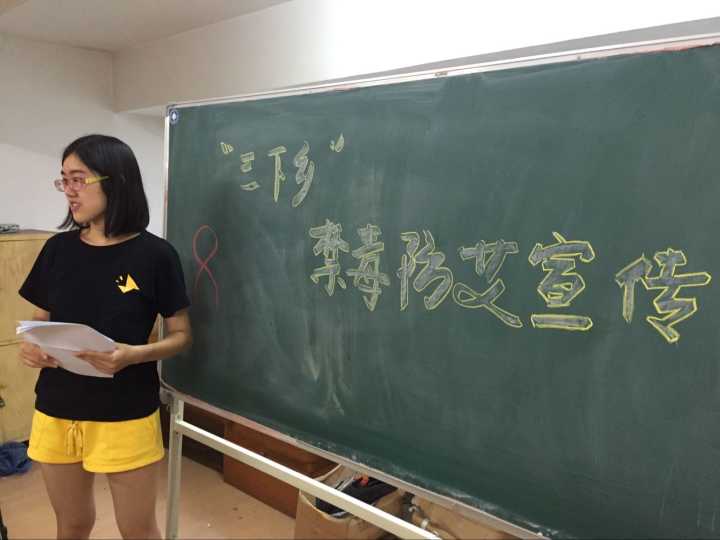 “三下乡”
禁毒防艾宣传